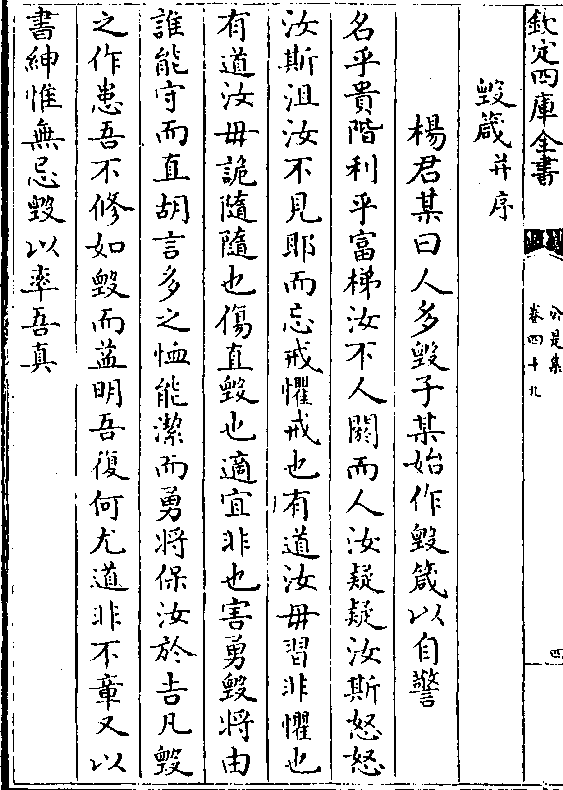 欽定四庫全書
公是集
卷四十九
四
毀箴并序
楊君某曰人多毀子某始作毀箴以自警
名乎貴階利乎富梯汝不人闕而人汝疑疑汝斯怒怒
汝斯沮汝不見耶而忘戒懼戒也有道汝毋習非懼也
有道汝毋詭隨隨也傷直毀也適宜非也害勇毀將由
誰能守而直胡言多之恤能潔而勇將保汝於吉凡毀
之作患吾不修如毀而益明吾復何尤道非不章又以
書紳惟無忌毀以率吾真